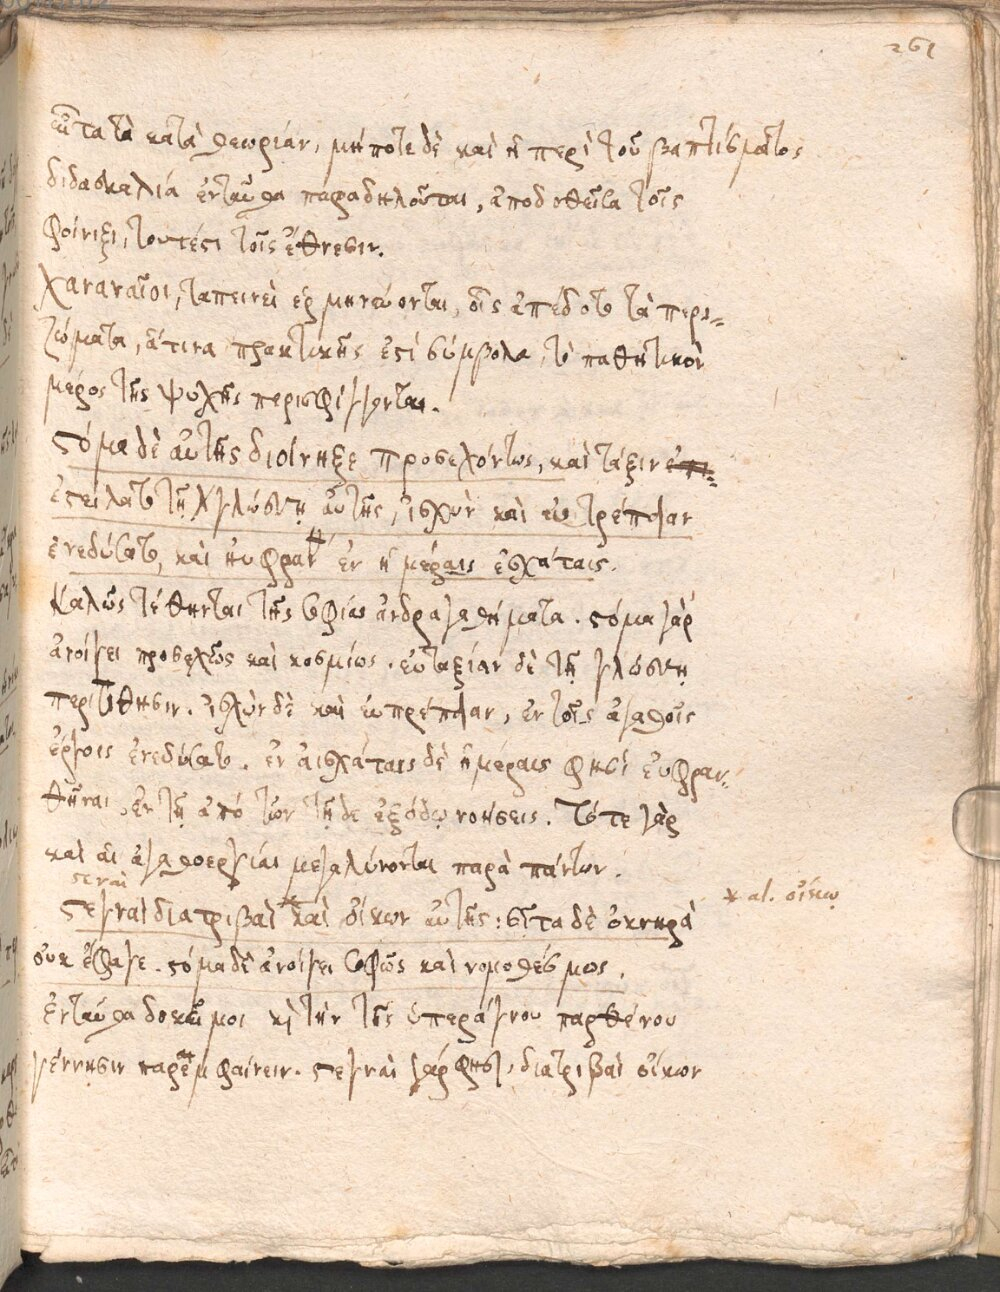 261
εἶτα τὰ κατὰ θεωρίαν, μήποτε δὲ καὶ ἡ περὶ τοῦ βαπτίσματος
διδασκαλία ἐνταῦθα παραδηλοῦται, ἀποδοθεῖσα τοῖς
φοίνιξι, τουτέστι τοῖς ἔθνεσιν.
Χαναναῖοι, ταπεινοὶ ἑρμηνεύονται, οἷς ἀπέδοτο τὰ περι-
ζώματα, ἅτινα πρακτικῆς ἐστὶ σύμβολα, τὸ παθητικὸν
μέρος τῆς ψυχῆς περισφίγγοντα.
στόμα δὲ αὐτῆς διοίνηξε προσεχόντως, καὶ τάξιν
ἐστείλατο τῇ γλώσσῃ αὐτῆς, ἰσχὺν καὶ εὐπρέπειαν
ἐνεδύσατο, καὶ ηὐφράνθη ἐν ἡμέραις ἐσχάταις.
Καλῶς τέθηνται τῆς σοφίας ἀνδραγαθήματα. στόμα γὰρ
ἀνοίγει προσεχῶς καὶ κοσμίως. εὐταξίαν δὲ τῇ γλώσσῃ
περιτίθησιν. ἰσχὺν δὲ καὶ εὐπρέπειαν, ἐν τοῖς ἀγαθοῖς
ἔργοις ἐνεδύσατο. ἐν αἰσχάταις δὲ ἡμέραις φησὶ εὐφραν-
θῆναι, ἐν τῇ ἀπὸ τῶν τῇδε ἐξόδῳ νοήσεις. τότε γὰρ
καὶ αἱ ἀγαθοεργίαι μεγαλύνονται παρὰ πάντων.
στεναὶ
στεγναὶ διατριβαὶ * καὶ οἴκων αὐτῆς: σῖτα δὲ ὀκνηρὰ
* al. οἴκῳ
οὐκ ἔφαγε. στόμα δὲ ἀνοίγει σοφῶς καὶ νομοθέσμως.
ἐνταῦθα δοκεῖ μοι καὶ τὴν τῆς ὑπεράγνου παρθένου
γέννησιν παρεμφαίνειν. στεγναὶ γάρ φησι, διατριβαὶ οἴκων